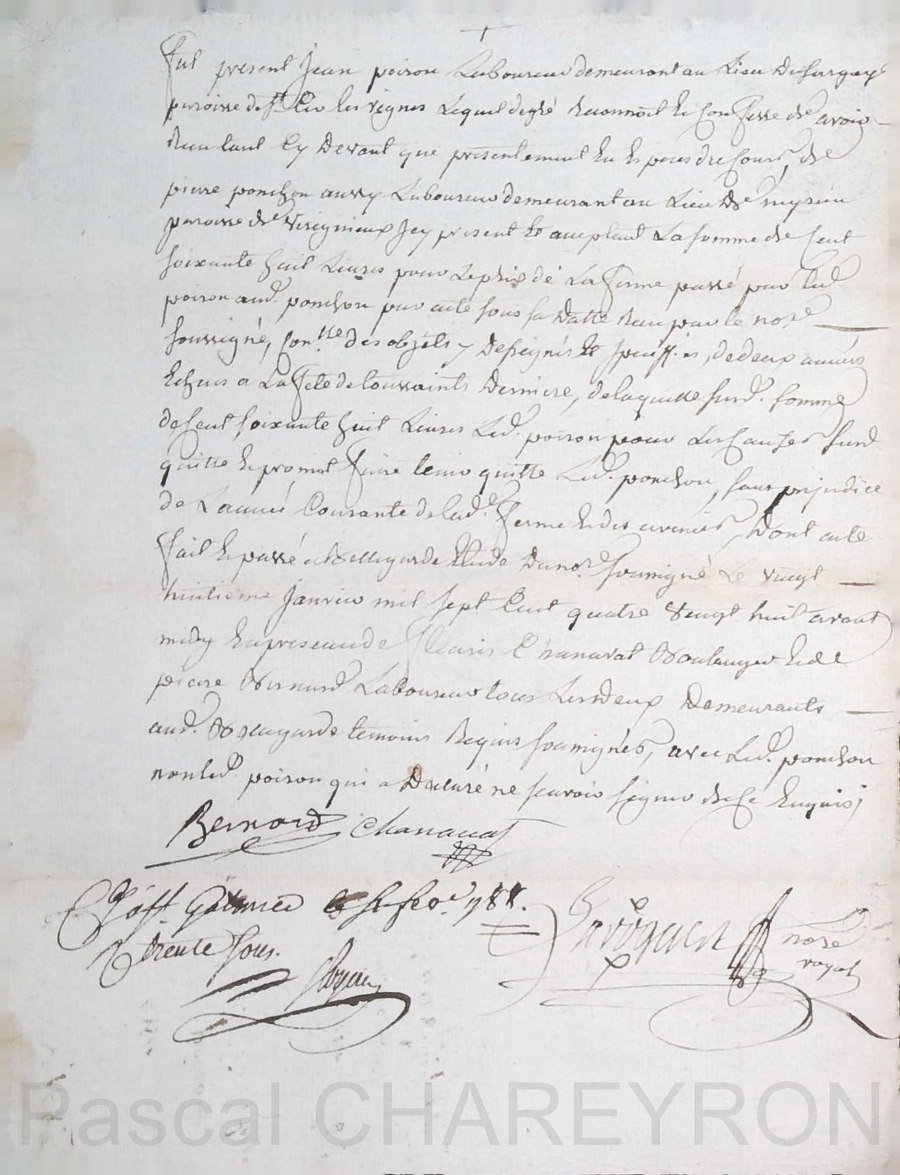 Fut present Jean poiron Laboureur demeurant au Lieu De
paroisse de St Cir les vignes Lequel de gré Reconnoit et Confesse de avoir
Reu tant Cy Devant que présentement En Especes de Cours, de
pierre ponchon aussy Laboureur demeurant au Lieu De
paroisse de Virignieux Icy present et acceptant La somme de Cent
soixante huit Livres pour Le prix dé La ferme passé par Led.
poiron aud. ponchon par acte sous sa Datte Reçu par le nore
soussigné, des objets y Designés et speciffiés, de deux années
Echues a La fete de toussaints Derniere, de laquelle susd. somme
de Cent soixante huit Livres Led. poiron pour Les Causes susd.
quitte et promet faire tenir quitte Led. ponchon, sans prejudice
de L'année Courante de lad. ferme Dont acte
fait et passé a Bellegarde Etude Du nore. soussigné Le vingt
huitieme Janvier mil sept Cent quatre vingt huit avant
midy En presence de Chanavat Boulanger et de
pierre Bernard Laboureur tous Les deux Demeurants
aud. Bellegarde temoins Requis soussignés, avec Led. ponchon
non led. poiron qui a Declaré ne scavoir signer de Ce Enquis;
Bernard Chanavat
1788.
trente sous.
nore
royal
Pascal CHAREYRON